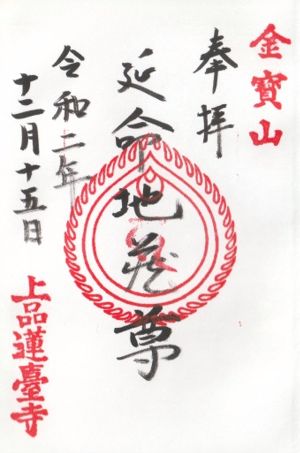 金寳山
奉拝
延命地蔵尊
令和二年
十二月十五日
上品蓮臺寺